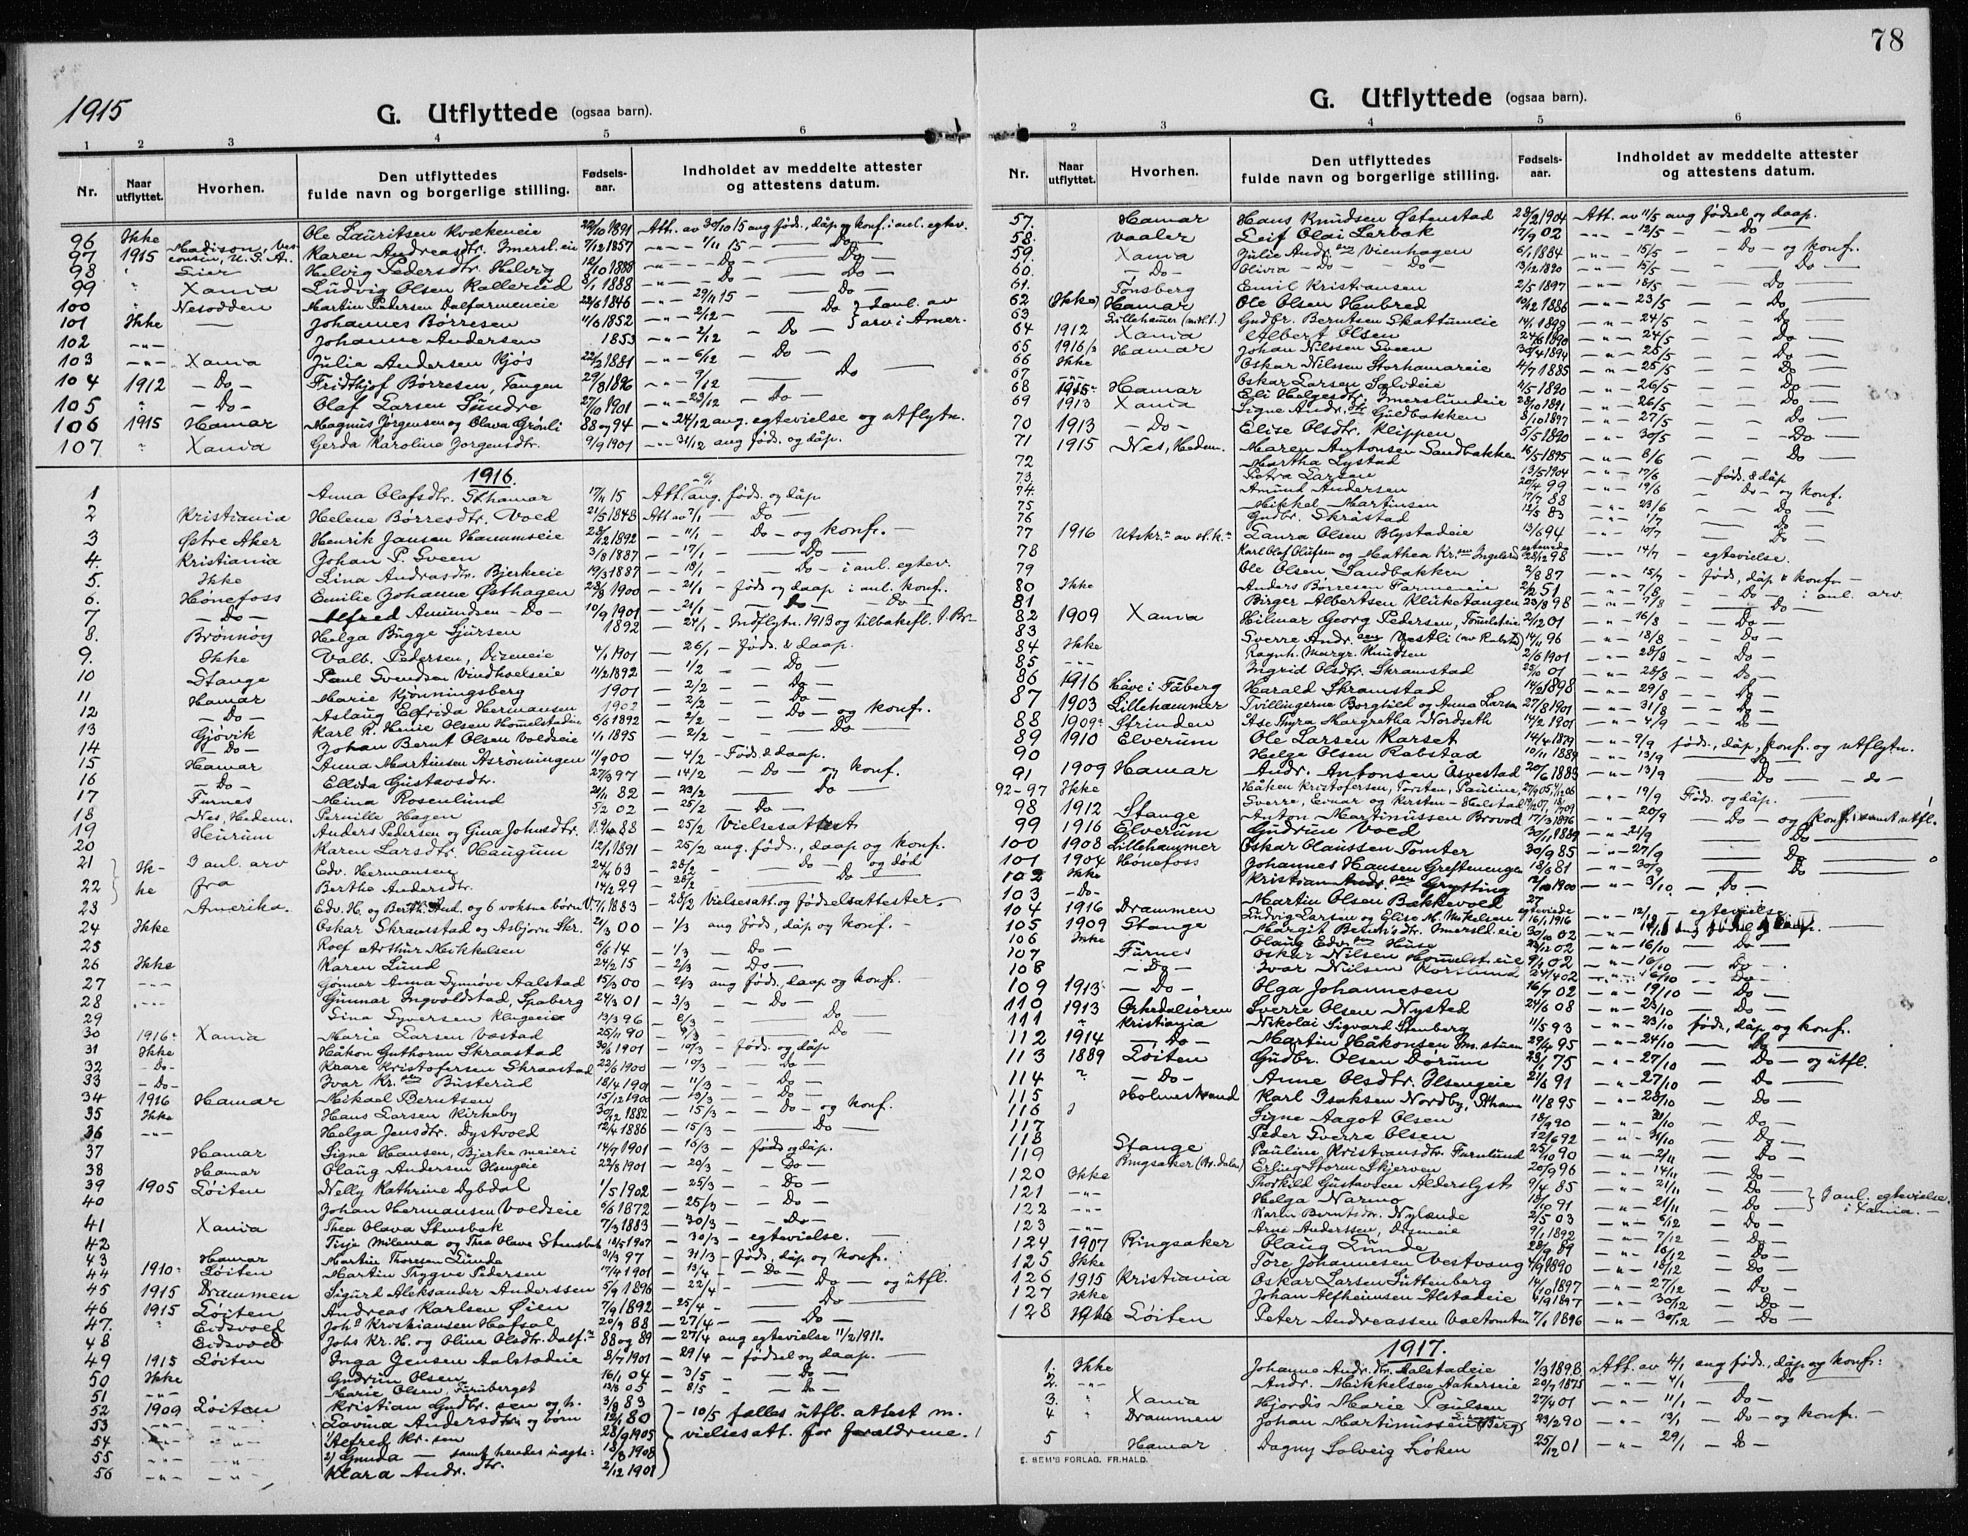 78
1915
G. Utflyttede (ogsaa barn).
1 2 3 4 5 6
Nr. Naar utflyttet. Hvorhen. Den utflyttedes fulde navn og borgerlige stilling. Fødsels-aar. Indholdet av meddelte attester og attestens datum.
96 Ikke Ole Lauritsen Kvækeneie 22/10 1891 Att. av 30/10 15 ang føds., dåp og konf. i anl. egtev.
97 1915 Madison, Wisconsin, U.S.A. Karen Andreasdtr. Imersl.eie 7/12 1857 – 1/11 15 – Do –
98 " Lier Helvig Pedersdtr. Helvig – Do – Do –
99 " Xania Ludvig Olsen Kallerud 8/1 1888 – Do – Do –
100 " Nesodden Martin Pedersen Dalfarmeneie 22/6 1846 – 29/11 15 – Do –
101 Ikke — Johannes Børresen 11/6 1852 – 2/12 – Do } I anl. av arv i Amer.
102 -"- Johanne Andersen 1853 – 2/12 – Do –
103 -"- Xania Julia Andersen Kjøs 22/2 1881 – 6/12 – Do –
104 1912 – Do – Fridthjof Børresen, Tangen 29/8 1896 – 9/12 – Do –
105 " – Do – Olaf Larsen Sundre 27/10 1901 – 23/12 – Do –
106 1915 Hamar Magnus Jørgensen og Olava Grønli 88 og 94 – 24/12 ang. egtevielse og utflytn.
107 " Xania Gerda Karoline Jorgensdtr. 9/9 1901 – 31/12 ang føds. og dåp.
1916.
1 Anna Olafsdtr. St.hamar 17/4 15 Att. 6/1 ang. føds. og dåp
2 Kristiania Helene Børresdtr. Voed 21/5 1843 Att av 7/1 – Do –
3 Østre Aker Henrik Jansen Hammseie 28/12 1892 – 11/1 – Do – og konfr. –
4. Kristiania Johan P. Sveen 3/8 1887 – 17/1 – Do –
5. Ikke Lina Andreasdtr. Bjerkeeie 19/3 1887 – 18/1 – Do – i anl. egtev.
6. Hønefoss Emilie Johanne Østhagen 28/8 1900 – 21/1 – føds. og daap i anl. konf.
7 – Do – Alfred Amundsen – Do – 10/9 1901 – 21/1 – Do – Do –
8. Brønnøy Helga Bugge Sjursen 1892 – 24/1 – Indflytn. 1913 og tilbakefl. t. Br.
9. Ikke Valb. Pedersen, Dizeneie 4/1 1901 – 26/1 – føds. & daap.
10 Stange Paul Svendsen Vindhseleie 11/2 1892 – 1/2 – Do –
11 Hamar Marie Kjønningsberg 1901 – 2/2 – Do –
12 – Do – Aslaug Elfrida Hermansen 1902 – 2/2 – Do –
13 Gjøvik Karl R. Henie Olsen Hommelstadeie 6/6 1892 – 2/2 – Do – og konfr.
14 – Do – Johan Bernt Olsen Voldseie 1/1 1895 – 2/2 – Do –
15 Hamar Anna Martinsen Aasrønningen 11/9 00 – 4/2 – Føds. & daap.
16 – Do – Ellida Gustavsdtr. 27/3 97 – 14/2 – Do – og konf.
17 Furnes Mina Rosenlund 21/11 82 – 23/2 – Do –
18 Nes, Hedem. Pernille Hagen 5/2 02 – 25/2 – Do –
19 Heurum Anders Pedersen og Gina Johnsdtr. 88 – 25/2 Vielsesattest
20 Karen Larsdtr. Haugum 12/1 1891 – 25/2 ang. føds., daap og konf.
21 Ik- I anl. arv Edv. Hermansen 24/4 63 – 28/2 – Do – og død
22 ke fra Berthe Andersdtr. 14/2 29 – 28/2 – Do –
23 Amerika. Edv. H. og Berthe And. og 6 voksne børn 1883 – 28/2 Vielsesatt. og fødselsattester.
24 Ikke Oskar Skramstad og Asbjørn Skr. 21/3 00 – 1/3 ang føds., dåp og konfr. –
25 Roef Arthur Mikkelsen 6/6 14 – 1/3 – Do –
26 Ikke Karen Lund 24/2 15 – 2/3 – Do –
27 --- Gunnar Anna Synnøve Aalstad 15/3 00 – 2/3 ang føds., daap og konfr.
28 --- Gunnar Ingvoldstad, Spaberg 24/3 01 – 3/3 – Do –
29 Lina Syversen Klugeeie 13/3 96 – 8/3 – Do –
30 1916 Xania Marie Larsen Væstad 25/11 90 – 9/3 – Do –
31 Ikke Håkon Guthorm Skraastad 30/6 1901 – 10/3 – føds. og dåp
32 – Do – Kaare Kristofersen Skraastad 22/6 1900 – 10/3 – Do –
33 – Do – Ivar Kr.sen Busterud 18/4 1901 – 11/3 – Do –
34 1916 Hamar Mikael Berntsen 15/12 1900 – 13/3 – Do –
35 Ikke Hans Larsen Kirkeby 30/12 1882 – 15/3 – Do – og konfr.
36 -"- Helga Jensdtr. Dystvold 12/4 1886 – 15/3 – Do –
37 Hamar Signe Hansen, Bjerke meieri 14/7 1901 – 16/3 føds og dåp.
38 Hamar Olaug Andersen Olsengeie 22/8 1901 – 20/3 – Do –
39 1905 Løiten Nelly Kathrine Dybdal 1/5 1902 – 25/3 – Do –
40 Johan Hermansen Voldseie 6/6 1872 – 25/3 – Do –
41 Xania Thea Olava Stensbak 7/3 1883 – 30/3 – Do –
42 Tirja Milema og Thea Olava Stensbak 18/5 1907 – 30/3 – egtevielse.
43 Hamar Martin Thoresen Lunde 31/3 97 – 31/3 – føds, dåp og konfr.
44 1910 Løiten Martin Trygve Pedersen 17/4 1901 – 13/4 – Do –
45 1915 Drammen Sigurd Aleksander Anderssen 5/9 1896 – 22/4 – Do – og utfl.
46 1915 Løiten Andreas Karlsen Øien 7/9 1892 – 25/4 – Do –
47. Eidsvold Johs Kristiansen Hofsal 20/9 88 – 27/4 – Do –
48 Eidsvold Johs Kr. H. og Oline Olsdtr. Dalf. 88 og 89 – 27/4 ang egtevielse 11/2 1911.
49 1915 Løiten Inga Jensen Aalstadeie 8/7 1901 – 29/4 – fødsel og daap.
50 Ikke Gudrun Olsen 16/1 04 – 3/5 – Do –
51 -"- Marie Olsen, Furuberget 13/8 05 – 8/5 – Do –
52 1909 Løiten Kristian Gudbr.sen og h. 3/9 83 – 10/5 fælles utfl. attest m.
53 Lavina Andersdtr. og børn 12/1 80 vielsesatt. for forældrene.
54 1) Alfred Kr.sen 28/9 1905
55 2) Gunda — samt hendes uægte: 18/8 1908
56 Klara Andr.dtr. 2/12 1901
G. Utflyttede (ogsaa barn).
1 2 3 4 5 6
Nr. Naar utflyttet. Hvorhen. Den utflyttedes fulde navn og borgerlige stilling. Fødsels-aar. Indholdet av meddelte attester og attestens datum.
57. Hamar Hans Knudsen Østenstad 23/2 1904 Att. av 11/5 ang fødsel og daap.
58. Vaaler Leif Olai Lerbak 17/9 02 – 12/5 – Do –
59. Xania Julie Andr.sen Vienhagen 6/1 1884 – 15/5 – Do – og konfr.
60. – Do – Olivia – Do – Do – 13/12 1890 – 15/5 – Do –
61. Tønsberg Emil Kristiansen 2/5 1897 – 18/5 – Do –
62 (Ikke) Hamar Ole Olsen Hubred 10/12 1886 – 23/5 – Do –
63 Lillehamer (midl.) Gudbr. Berntsen Skattumlie 14/1 1899 – 24/5 – Do –
64 1912 Xania Albert Olsen 24/6 1890 – 24/5 – Do –
65 1916 Hamar Johan Nilssen Sveen 30/4 1894 – 25/5 – Do –
66 Ikke Oskar Nilssen Storhamareie 4/7 1885 – 25/5 – Do –
67 Oskar Larsen Sølvdeie 4/5 1890 – 26/5 – Do –
68 1915 Hamar Eli Helgesdtr. Imerslundeie 28/10 1891 – 26/5 – Do –
69 1913 Xania Signe Andr.dtr. Guldbakken 8/10 1897 – 27/5 – Do –
70 1913 – Do – Elise Olsdtr. Klippen 5/5 1890 – 30/5 – Do –
71 1915 Nes, Hedem. Maren Antonsen Sandbakken 16/5 1895 – 8/6 – Do –
72 Martha Lystad
73 Petra Larsen 13/5 1904 – 17/6 – føds. & dåp
74. Amund Andersen 20/4 99 – 19/6 – Do – og konf.
75 Mikkel Martinsen 17/7 88 – 23/6 – Do
76 Gudbr. Skråstad 12/5 83 – 1/7 – Do
77 1916 Utskr. av st.k. Laura Olsen Blystadeie 13/6 94 – 10/7 – Do –
78 Karl Olaf Olufsen og Mathea Kr.sen Ingelsrd 98 – 14/7 – egtevielse.
79 Ole Olsen Sandbakken 2/8 87 – 15/7 – føds, dåp & konfr –
80 Ikke Anders Børresen Farmeneie 2/2 51 – 7/8 – Do – i anl. arv.
81 Birger Albertsen Kluketangen 23/8 98 – 7/8 – Do –
82 1909 Xania Hilmar Georg Pedersen, Tomlsteie 2/12 01 – 16/8 – Do –
83 Sverre Andr.sen Vestli (nv Rabst.) 14/1 96 – 18/8 – Do –
84 Ikke Ragnh. Margr. Knudsen 2/6 1901 – 28/8 – Do –
85 -"- Ingrid Olsdtr. Skramstad 22/10 01 – 28/8 – Do –
86 1916 Håve i Fåberg Harald Skramstad 14/2 1898 – 29/8 – Do –
87 1903 Lillehammer Tvillingerne Borghild og Anna Larsen 27/8 1901 – 31/8 – Do –
88 1909 Strinden Åse Thyra Margretha Nordseth 14/2 1901 – 4/9 – Do –
89 1910 Elverum Ole Larsen Karset 14/4 1879 – 9/9 føds., dåp, konfr. og utflytn.
90 Helge Olsen Rabstad 10/11 1889 – 13/9 – Do –
91 1909 Hamar Andr. Antonsen Åsvestad 20/6 1883 – 13/9 – Do – do –
92–97 Ikke Håken Kristofersen, Torsten, Pauline, Sverre, Einar og Kirsten – Helstad – 19/9 Føds. og dåp.
98 1912 Stange Anton Martinussen Brovold 17/3 1896 – 20/9 – Do – og konf. samt utfl.
99 1916 Elverum Gudrun Voed 30/1 1889 – 21/9 – Do –
100 1908 Lillehammer Oskar Claussen Tomter 30/9 85 – 27/9 – Do –
101 1904 Hønefoss Johannes Hansen Greftenengen 18/6 81 – 30/9 – Do –
102 Ikke Kristian Andr.sen Grytting 12/10 1900 – 3/10 – Do –
103 – Do – Martin Olsen Bækkevold 27
104 1916 Drammen Ludvig Larsen og Elise M. Mikelsen egteviede 16/1 1916 – 12/10 – egtevielse –
105 1909 Stange Margit Bernt's dtr. Imersld.eie 30/10 02 – 14/10
106 Ikke Olaug Edv.sen Huse 22/12 02 – 16/10 – Do –
107 Furnes Oskar Nilsen Hommelst.eie 9/1 02 – 16/10 – Do –
108 – Do – Ivar Nilsen Korslund 24/4 02 – 16/10 – Do –
109 1913 – Do – Olga Johannesen 16/7 02 – 19/10 – Do –
110 1913 Orkedalsøren Sverre Olsen Nysted 24/6 08 – 23/10 – Do –
111 " Kristiania Nikolai Sigvard Stenberg 11/5 93 – 23/10 føds, dåp og konfr.
112 1914 – Do – Martin Håkonsen Im.stuen 29/4 95 – 24/10 – Do –
113 1889 Løiten Gudbr. Olsen Dørum 23/1 75 – 27/10 – Do – og utfl.
114 ? – Do – Anne Olsdtr. Olsengeie 21/6 91 – 27/10 – Do –
115 Holmestrand Karl Isaksen Nordby, Åtham 11/8 95 – 28/10 – Do –
116 Signe Aagot Olsen 18/9 90 – 31/10 – Do –
117 Peder Sverre Olsen 12/6 92 – 31/10 – Do –
118 Stange Pauline Kristiansdtr. Furulund 25/10 90 – 2/11 – Do –
119 Ringsaker (Br.dalen) Erling Storm Skjerven 20/9 96 – 14/11 – Do –
120 Ikke Thorkild Gustavsen Alderslyst 9/4 85 – 21/11 – Do –
121 -"- Helga Narmo 18/10 91 – 21/11 – Do – } I anl. egtevielse i Xania. –
122 -"- Karen Berntsdtr. Nylænde 2/5 03 – 6/12 – Do –
123 -"- Arne Anderssen, Dizeneie 9/1 1892 – 7/12 – Do –
124 1907 Ringsaker Olaug Lunde 28/9 89 – 16/12 – Do –
125 Ikke Tore Johannesen Vestvang 4/9 1890 – 18/12 – Do –
126 1915 Kristiania Oskar Larsen Luttenberg 14/10 1897 – 27/12 – Do –
127 Ikke Johan Alfheimsen Ålstadeie 4/9 1897 – 30/12 – Do –
128 1916 Løiten Peter Andreassen Valtomten 7/1 1896 – 30/12 – Do –
1917.
1. Ikke Johanne Andr.dtr. Aalstadeie 1/3 1893. Att. av 4/1 ang føds., dåp og konfr:
2. -"- Andr. Mikkelsen Aakerseie 20/7 1875 – 4/1 – Do –
3. " Xania Hjørdis Marie Paulsen 27/4 01 – 11/1 – Do –
4 " Drammen Johan Martinussen 23/2 90 – 13/1 – Do – og konfr. –
5 Hamar Dagny Solveig Løken 25/12 01 – 29/1 – Do –
E. SEM'S FORLAG. FR.HALD.